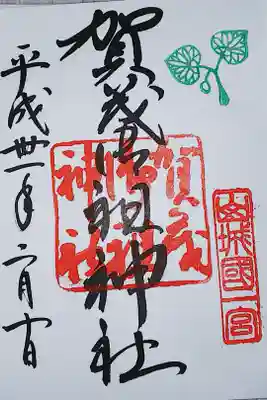 山城國一宮
賀茂御祖神社
賀茂
御祖
神社
平成卅一年二月十日